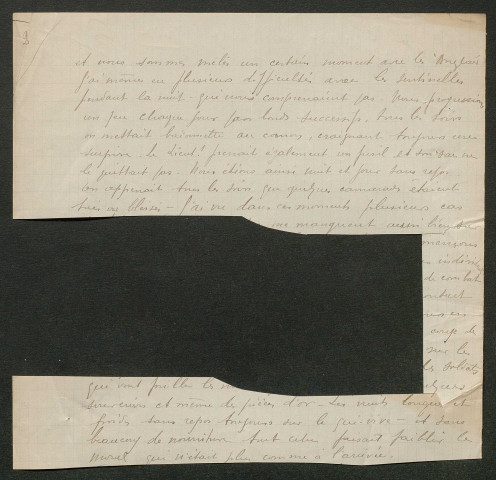 2
et nous sommes melés un certain moment avec les Anglais
j'ai même eu plusieurs difficultés avec les sentinelles
pendant la nuit qui nous comprenaient pas. Nous progressions
un peu chaque jour par bonds successifs. Tous les soirs
on mettait baïonnette au canon, craignant toujours une
surprise. Le Lieut! prenait également un fusil et son sac ne
le quittait pas. Nous étions ainsi nuit et jour sans repos
on apprenait tous les soirs que quelques camarades étaient
tués ou blessés - J'ai vu dans ces moments plusieurs cas
me manquent aussi bien
de combat
sur le
les soldats
qui vont fouiller les
et même de pièces d'or - Les nuits longues et
froides sans repos toujours sur le qui-vive - et sans
beaucoup de nourriture tout cela faisait faiblir le
moral qui n'était plus comme à l'arrivée.